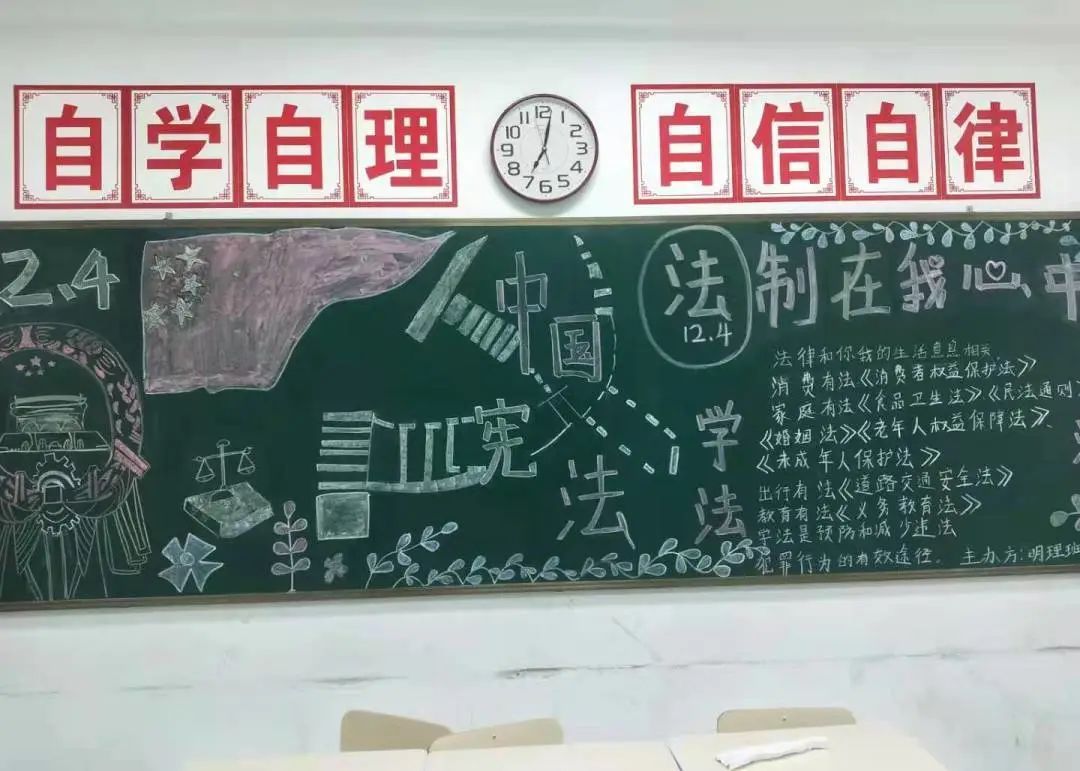 自学自理
自信自律
12
1
2
3
4
5
6
7
8
9
10
11
2.4
中国
宪法
法
12.4
制在我心中
学法
法律和你我的生活息息相关
消费有法《消费者权益保护法》
家庭有法《食品卫生法》《民法通则》
《婚姻法》《老年人权益保障法》、
《未成年人保护法》
出行有法《道路交通安全法》
教育有法《义务教育法》
学法是预防和减少违法
犯罪行为的有效途径。 主办方:明理班